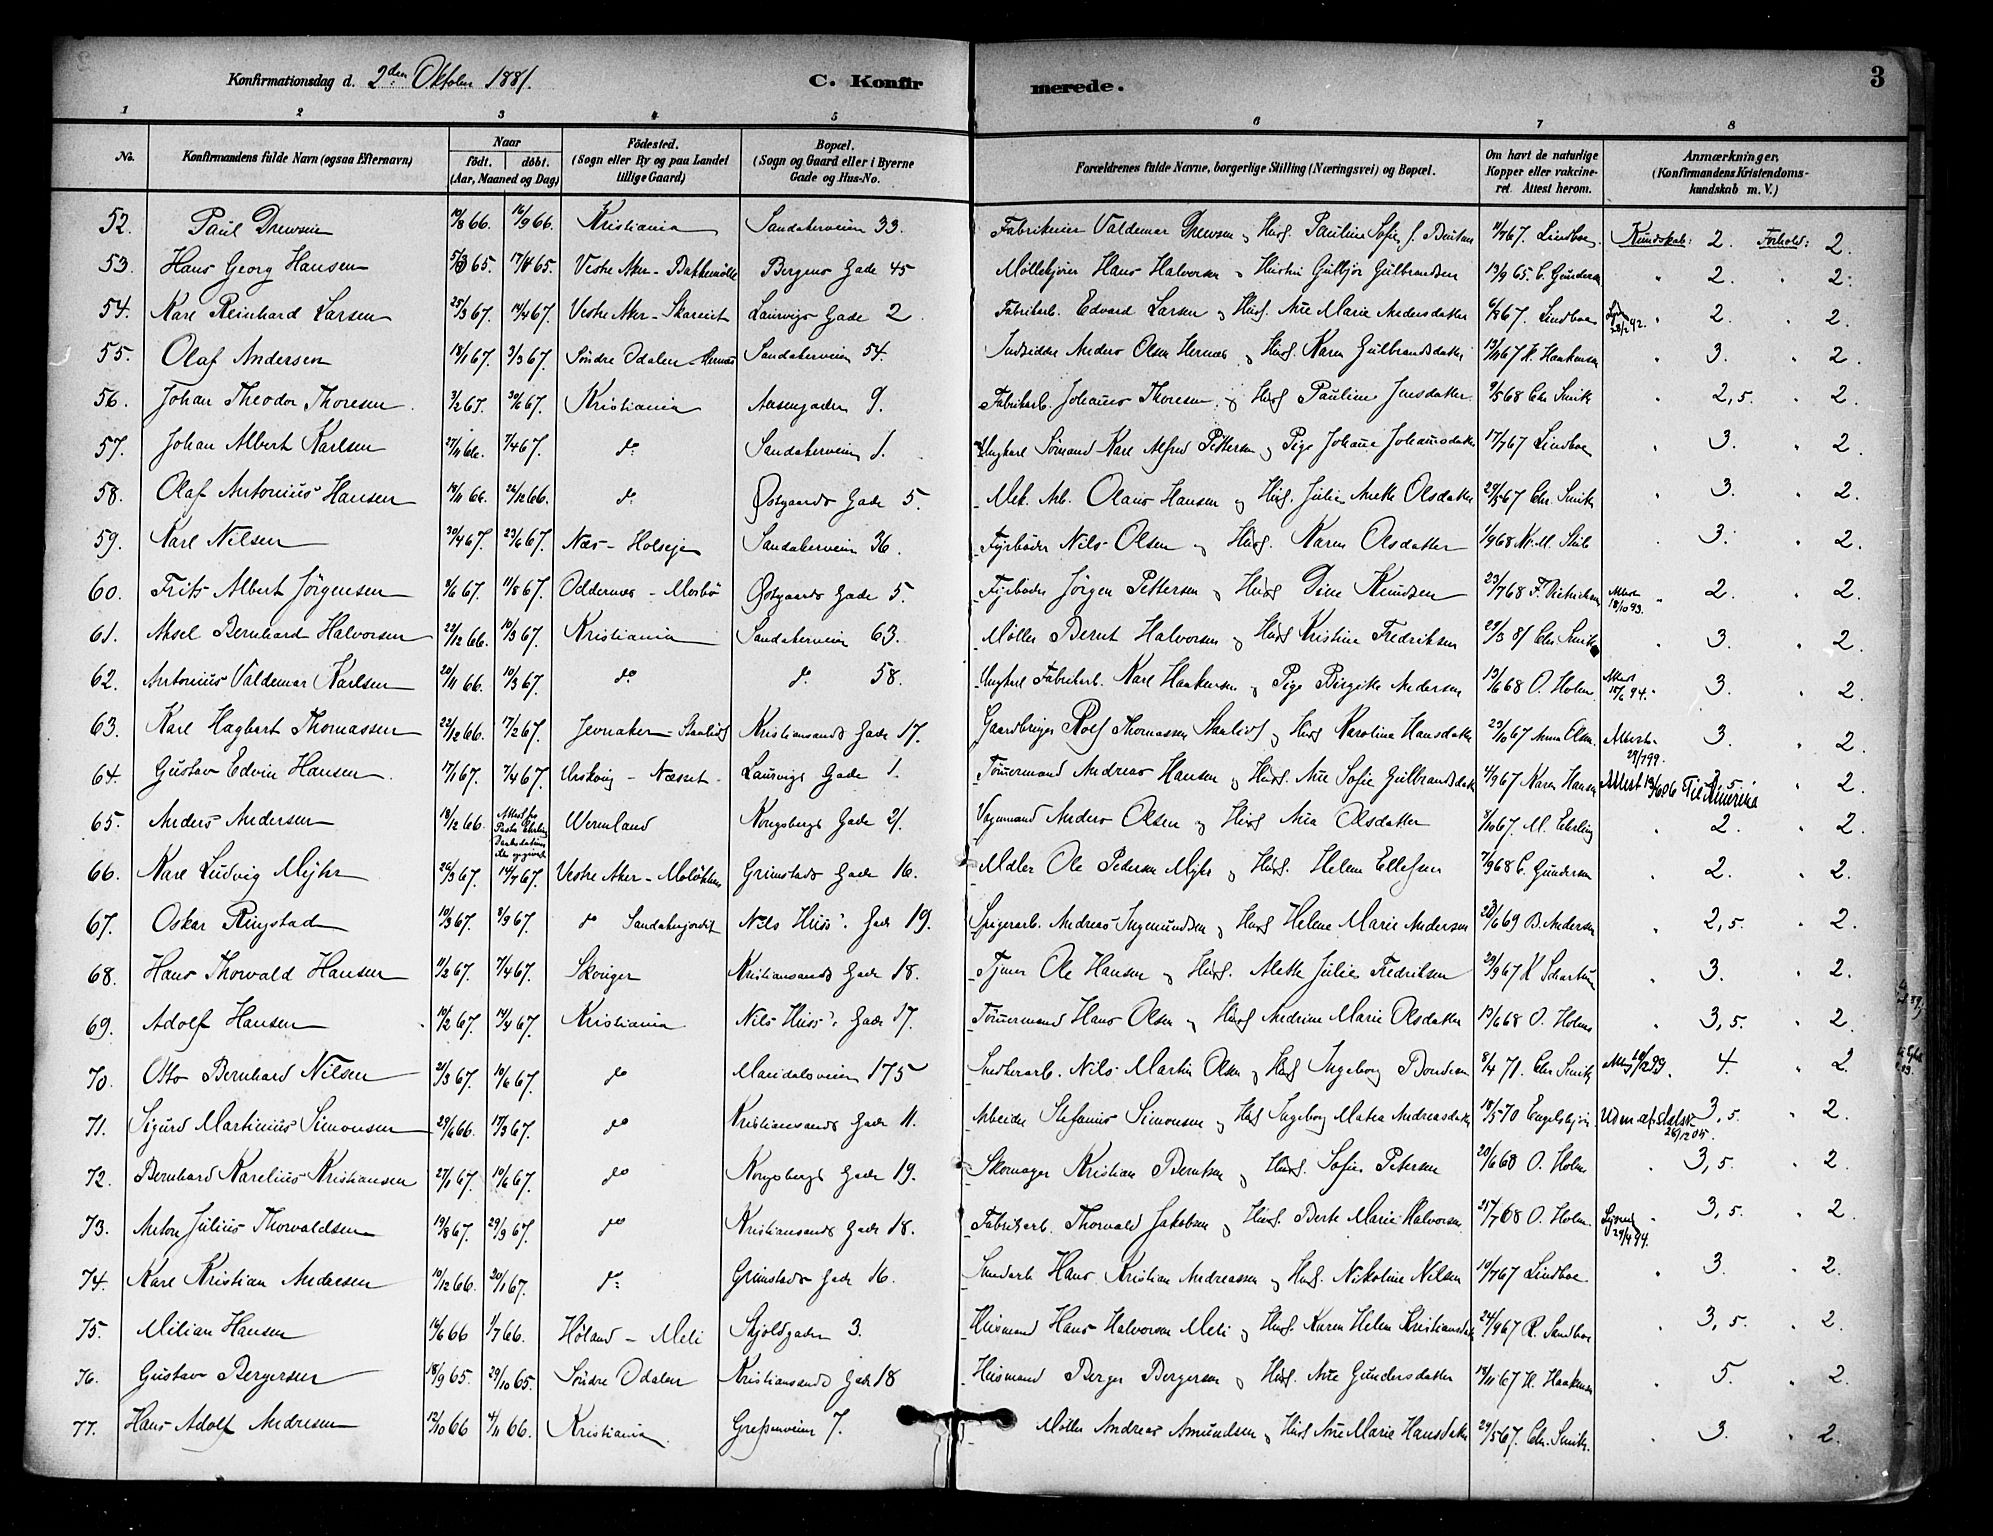 Konfirmationsdag d. 2den Oktober 1881. C. Konfirmerede. 3
1 2 3 4 5 6 7 8
No. Konfirmandens fulde Navn (ogsaa Efternavn) Naar födt. döbt. (Aar, Maaned og Dag) Födested. (Sogn eller By og paa Landet tillige Gaard) Bopæl. (Sogn og Gaard eller i Byerne Gade og Hus-No. Forældrenes fulde Navne, borgerlige Stilling (Næringsvei) og Bopæl. Om havt de naturlige Kopper eller vakcineret. Attest herom. Anmærkninger. (Konfirmandens Kristendomskundskab m. V.)
52. Paul Drewsen 10/8 66. 16/9 66. Kristiania Sandakerveien 33. Fabrikeier Valdemar Drewsen og Hust. Pauline Sofie f. 4/7 67. Lindboe. Kundskab: 2. Forhold: 2.
53. Hans Georg Hansen 65. 65. Vestre Aker - Bakkemölle Bergens Gade 45 Möllekjörer Hans Halvorsen og Hustru Gulbjör Gulbrandsen 13/9 65. C. Gundersen " 2. " 2.
54. Karl Reinhard Larsen 25/3 67. 14/4 67. Vestre Aker - Laurvigs Gade 2. Fabrikarb. Edvard Larsen og Hust. Ane Marie Andersdatter 67. Lindboe 28/2 92. " 2. " 2.
55. Olaf Andersen 18/1 67. 3/3 67. Söndre Odalen - Hernæs Sandakerveien 54. Inderst Anders Olsen Hernæs og Hust. Karen Gulbrandsdatter 67 H. Haakensen " 3. " 2.
56. Johan Theodor Thoresen. 3/2 67. 30/6 67. Kristiania Aasengaden 9. Fabrikarb. Johannes Thoresen og Hust. Pauline Jensdatter 9/5 68 Chr. Smith " 2,5. " 2.
57. Johan Albert Karlsen 27/11 66. 7/4 67. do Sandakerveien 1. Ungkarl Sömand Karl Alfred Pettersen og Pige Johanne Johannesdatter 17/7 67 Lindboe " 3. " 2.
58. Olaf Antonius Hansen 18/11 66. 26/12 66. do Östgaards Gade 5. Mek. Arb. Olaus Hansen og Hust. Julie Anette Olsdatter 29/5 67 Chr. Smith " 3. " 2.
59. Karl Nilsen 30/4 67. 23/6 67. Næs - Holseje Sandakerveien 36. Fyrböder Nils Olsen og Hust. Karen Olsdatter 1/9 68 " 3. " 2.
60. Frits Albert Jörgensen 67. 11/8 67. Oddernes - Mosbö Östgaards Gade 5. Fyrböder Jörgen Pettersen og Hust. Dine Knudsen 23/7 68 F. Dietrichson Attest 18/10 93. " 2. " 2.
61. Aksel Bernhard Halvorsen 22/12 66. 10/3 67. Kristiania Sandakerveien 63. Möller Bernt Halvorsen og Hust Kristine Fredriksen 29/3 81 Chr. Smith " 3. " 2.
62. Antonius Valdemar Karlsen 20/11 66. 10/3 67. do do 58. Ungkarl Fabrikarb. Karl Haakensen og Pige Birgitte Andersen 13/6 68 O. Holm Attest 15/6 94. 3. " 2.
63. Karl Hagbart Thomassen 22/12 66. 17/2 67. Jevnaker - Kristiansands Gade 17. Gaardbruger Rolf Thomassen og Hust Karoline Hansdatter 23/10 67 Anna Olsen Attest 29/7 99. 3. " 2.
64. Gustav Edvin Hansen. 17/1 67. 7/4 67. Urskoug - Næsset - Laurvigs Gade 1. Tömmermand Andreas Hansen og Hust. Ane Sofie Gulbrandsdatter 4/9 67 Karen Hansen Attest 06 Til Amerika 5. " 2.
65. Anders Andersen 18/12 66. Attest fra Pastor Wermland Kongsbergs Gade 21. Vognmand Anders Olsen og Hust Ane Olsdatter 8/10 67. M. Ehrling " 2. " 2.
66. Karl Ludvig Myhr 26/3 67. 14/7 67. Vestre Aker - Grimstads Gade 16. Maler Ole Pedersen Myhr og Hust. Helene Ellefsen 7/9 68 C. Gundersen " 2. " 2.
67. Oskar Ringstad 10/3 67. 8/9 67. do Sandakerjordet Nils Huus's Gade 19. Spigerarb. Andreas Ingemundsen og Hust Helene Marie Andersen 69 B. Andersen " 2,5. " 2.
68. Hans Thorvald Hansen 11/2 67. 7/4 67. Skouger Kristiansands Gade 18. Tjener Ole Hansen og Hust. Mette Julie Fredriksen 29/9 67 K Schartum " 3. " 2.
69. Adolf Hansen 10/2 67. 14/4 67. Kristiania Nils Huus's Gade 17. Tömmermand Hans Olsen og Hust Andrine Marie Olsdatter 13/6 68 O. Holm " 3,5. " 2.
70. Otto Bernhard Nilsen 21/3 67. 10/6 67. do Maridalsveien 175 Snekkerarb. Nils Martin Olsen og Hust Ingeborg Bendsen 8/4 71. Chr. Smith 4. " 2.
71. Sigurd Martinius Simonsen 29/6 66. 17/3 67. do Kristiansands Gade 11. Arbeider Stefanus Simonsen og Hust Ingeborg Matea Andreasdatter 18/5 70 Engelskjön Udm af Statsk 28/12 05. 3,5. " 2.
72. Bernhard Karelius Kristiansen 27/1 67. 10/6 67. do Kongsbergs Gade 19. Skomager Kristian Berntsen og Hust. Sofie Petersen 20/6 68 O. Holm " 3,5. " 2.
73. Anton Julius Thorvaldsen 13/8 67. 29/9 67. do Kristiansands Gade 18. Fabrikarb. Thorvald Jakobsen og Hust. Berte Marie Halvorsen 21/7 68 O. Holm. 29/4 94. " 3,5. " 2.
74. Karl Kristian Andersen 10/12 66. 20/1 67. do Grimstads Gade 16. Hans Kristian Andreassen og Hust. Nikoline Nilsen 10/7 67 Lindboe " 3. " 2.
75. Milian Hansen 16/6 66 1/7 66. Höland - Meli Skjoldgaden 3. Husmand Hans Halvorsen Meli og Hust. Karen Helene Kristiansdatter 24/9 67 R. Sandboe " 3,5. " 2.
76. Gustav Bergersen 18/9 65. 29/10 65. Söndre Odalen Kristiansands Gade 18 Husmand Berger Bergersen og Hust. Ane Gundersdatter 18/11 67 H. Haakensen " 5. " 2.
77. Hans Adolf Andresen 12/10 66 4/11 66. Kristiania Grefsenveien 7. Möller Andreas Amundsen og Hust Ane Marie Hansdatter 29/5 67. Chr. Smith. " 3. " 2.